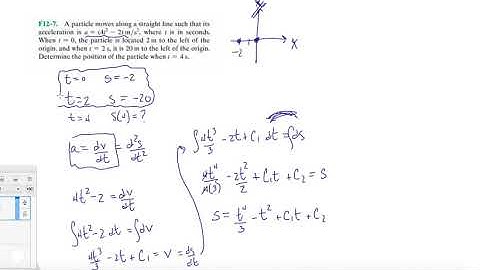 F12-7. A particle moves along a straight line such that its
acceleration is a = (4t² − 2) m/s², where t is in seconds.
When t = 0, the particle is located 2 m to the left of the
origin, and when t = 2 s, it is 20 m to the left of the origin.
Determine the position of the particle when t = 4 s.
-2
x
t=0 s=-2
t=2 s=-20
t=4 s(4)=?
a = dv/dt = d²s/dt²
4t²-2 = dv/dt
∫4t²-2 dt = ∫dv
4t³/3 -2t + C₁ = v = ds/dt
∫ 4t³/3 -2t + C₁ dt = ∫ds
4t⁴/4(3) - 2t²/2 + C₁t + C₂ = s
s = t⁴/3 - t² + C₁t + C₂